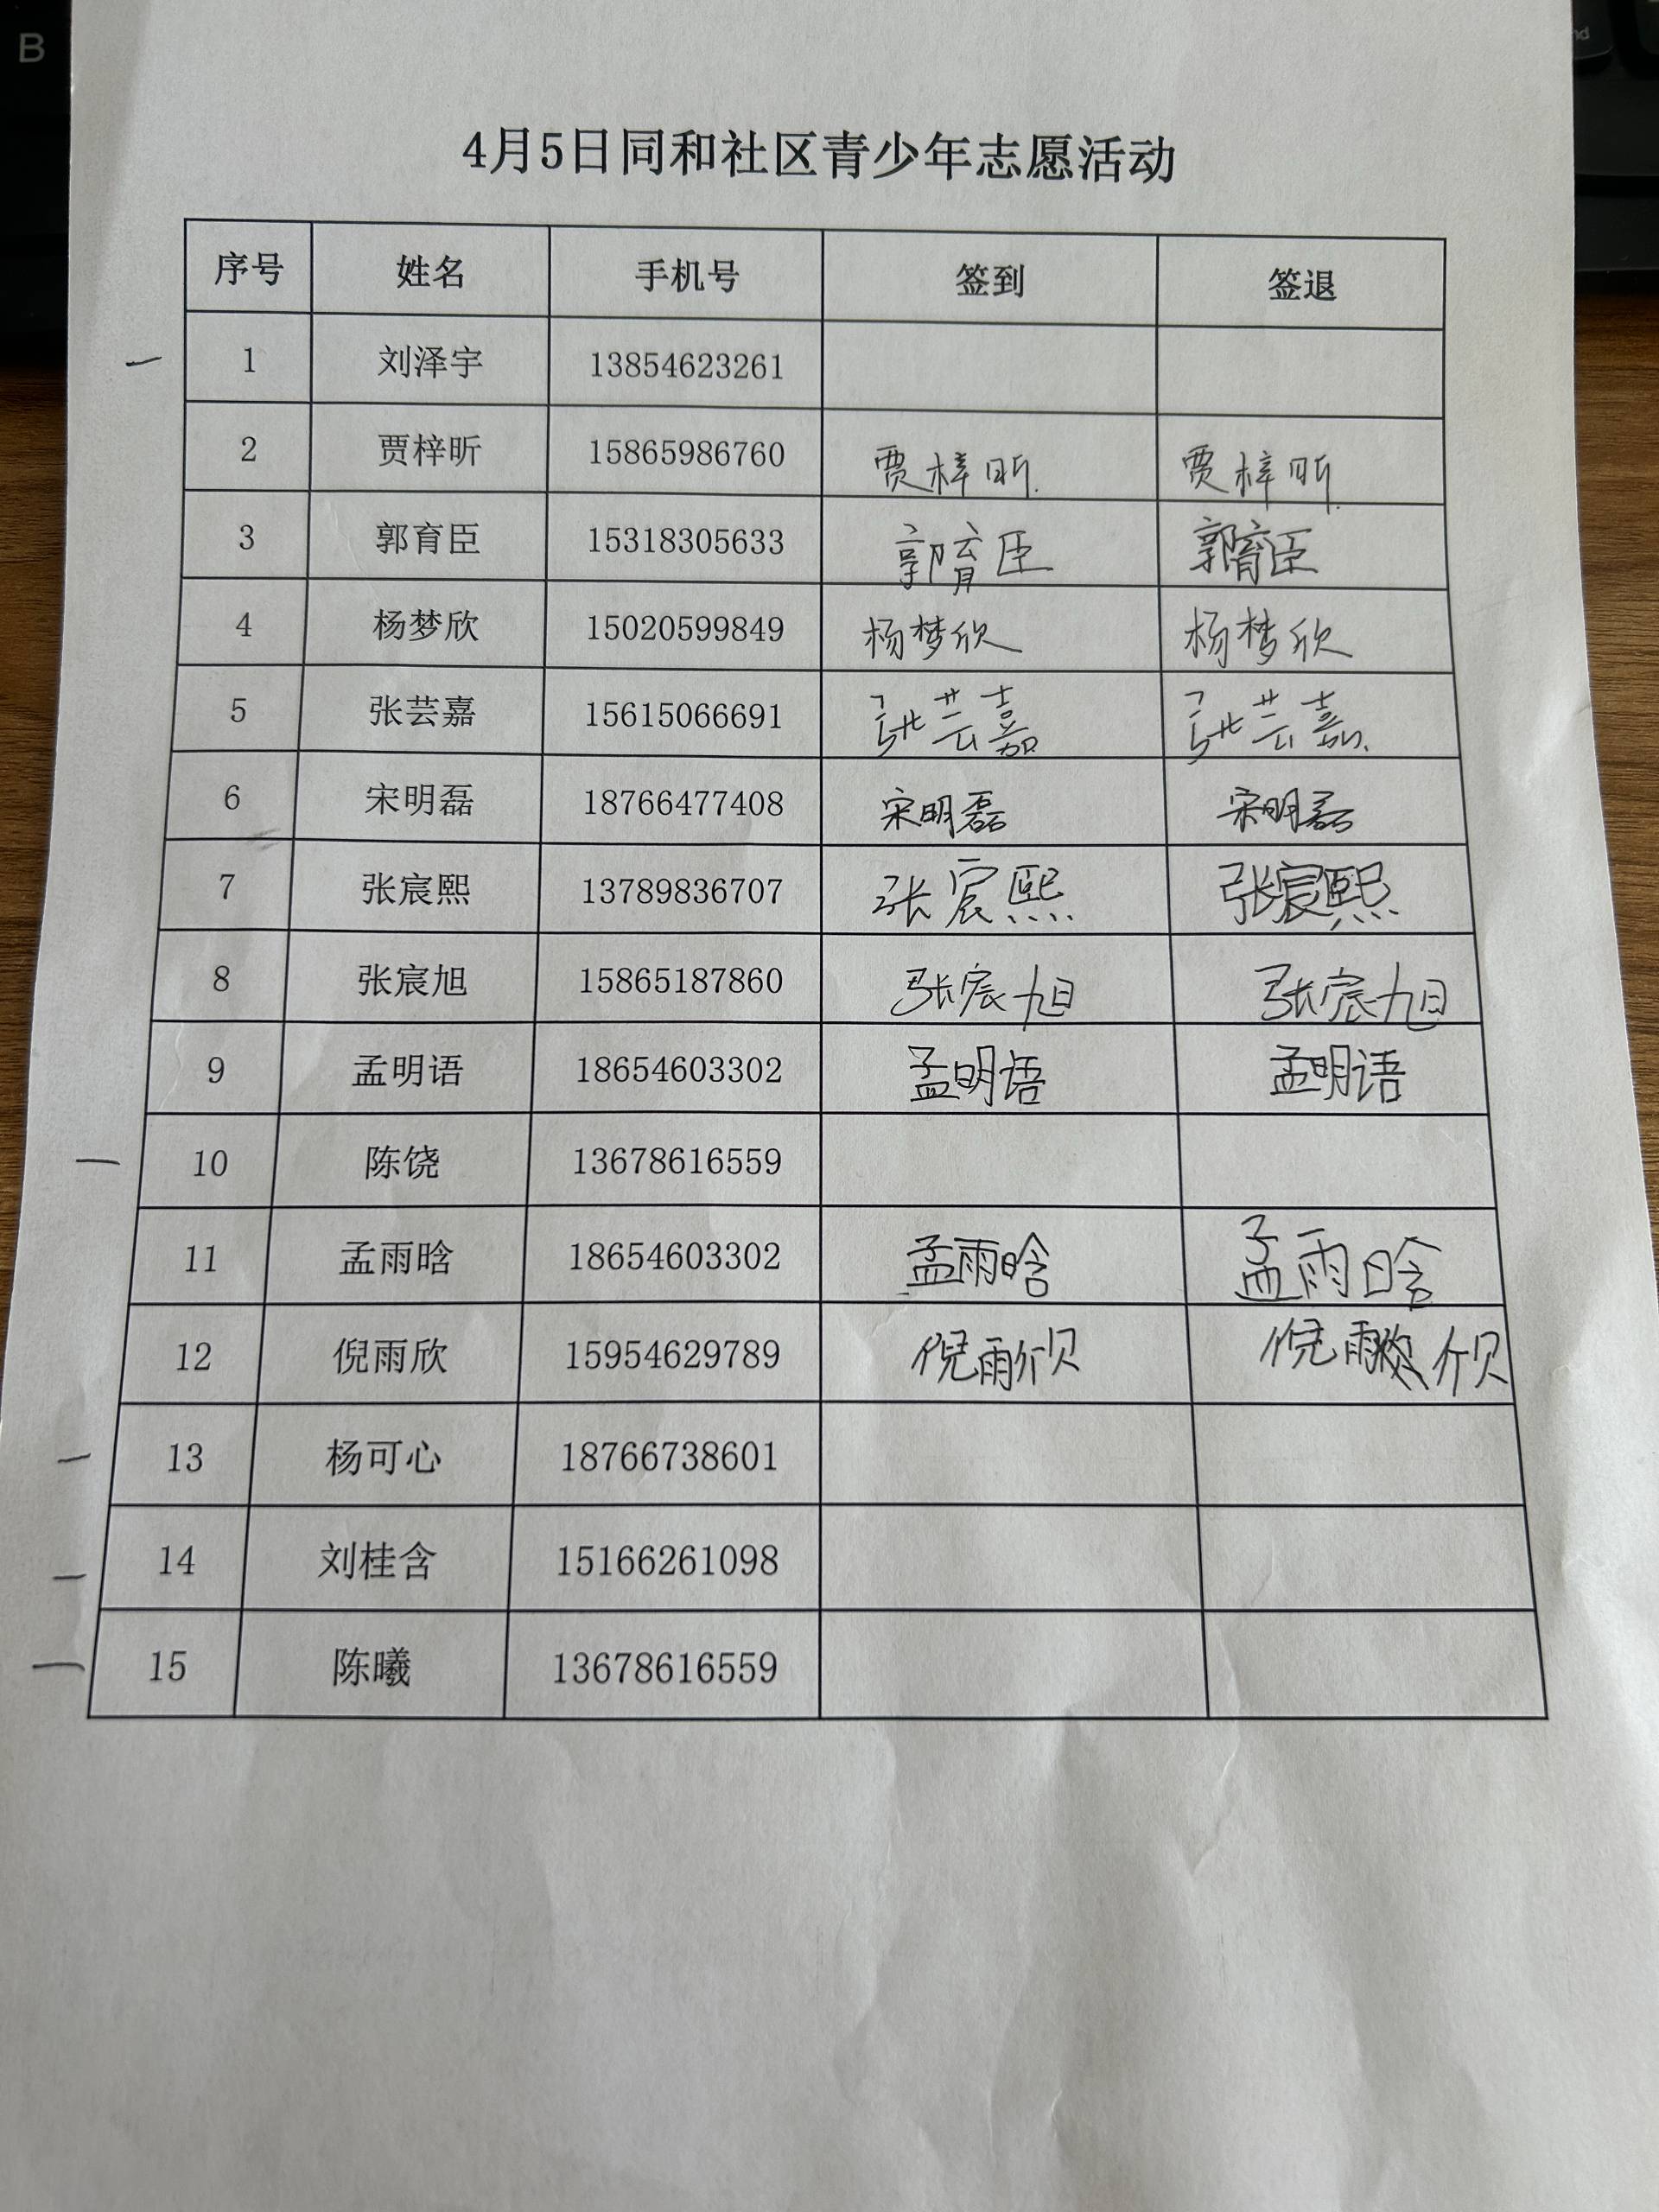 B
nd
4月5日同和社区青少年志愿活动
序号 姓名 手机号 签到 签退
一 1 刘泽宇 13854623261
2 贾梓昕 15865986760 贾梓昕. 贾梓昕.
3 郭育臣 15318305633 郭育臣 郭育臣
4 杨梦欣 15020599849 杨梦欣 杨梦欣
5 张芸嘉 15615066691 张芸嘉 张芸嘉.
6 宋明磊 18766477408 宋明磊 宋明磊
7 张宸熙 13789836707 张宸熙 张宸熙
8 张宸旭 15865187860 张宸旭 张宸旭
9 孟明语 18654603302 孟明语 孟明语
一 10 陈饶 13678616559
11 孟雨晗 18654603302 孟雨晗 孟雨晗
12 倪雨欣 15954629789 倪雨 倪雨
一 13 杨可心 18766738601
一 14 刘桂含 15166261098
一 15 陈曦 13678616559